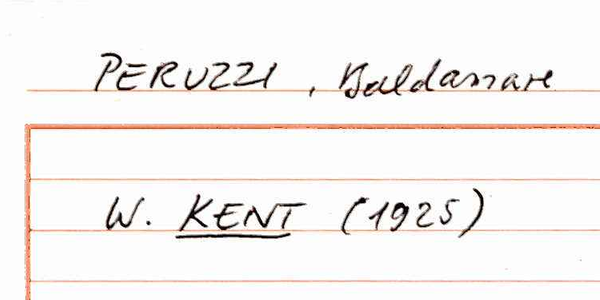 PERUZZI, Baldassare
W. KENT (1925)